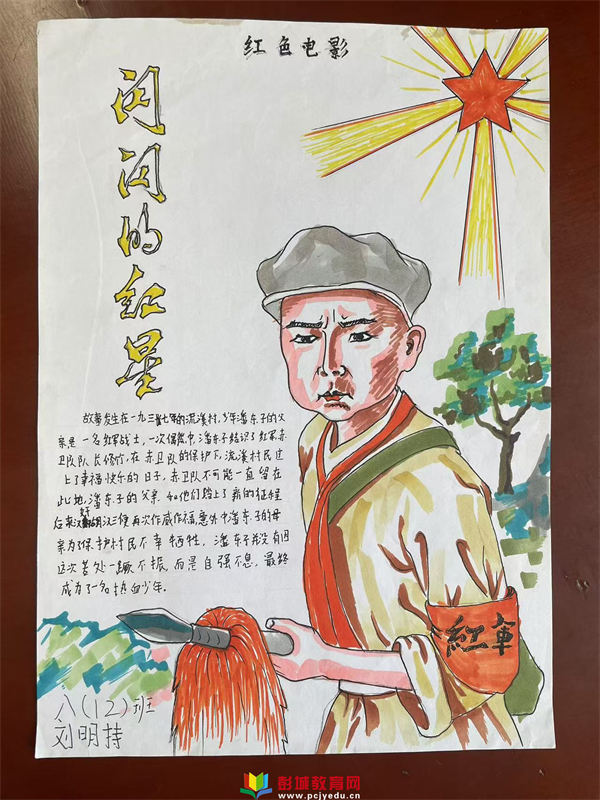 红色电影
闪闪的红星
故事发生在一九三七年的流溪村,少年潘东子的父
亲是一名红军战士,一次偶然中,潘东子结识了红军赤
卫队队长修竹,在赤卫队的保护下,流溪村民过
上了幸福快乐的日子,赤卫队不可能一直留在
此地,潘东子的父亲和他们踏上了新的征程
汉三便再次作威作福,意外中潘东子的母
亲为了保护村民不幸牺牲,潘东子并没有因
这次苦处一蹶不振,而是自强不息,最终
成为了一名热血少年.
紅軍
八(12)班
刘明持
彭城教育网
www.pcjyedu.cn